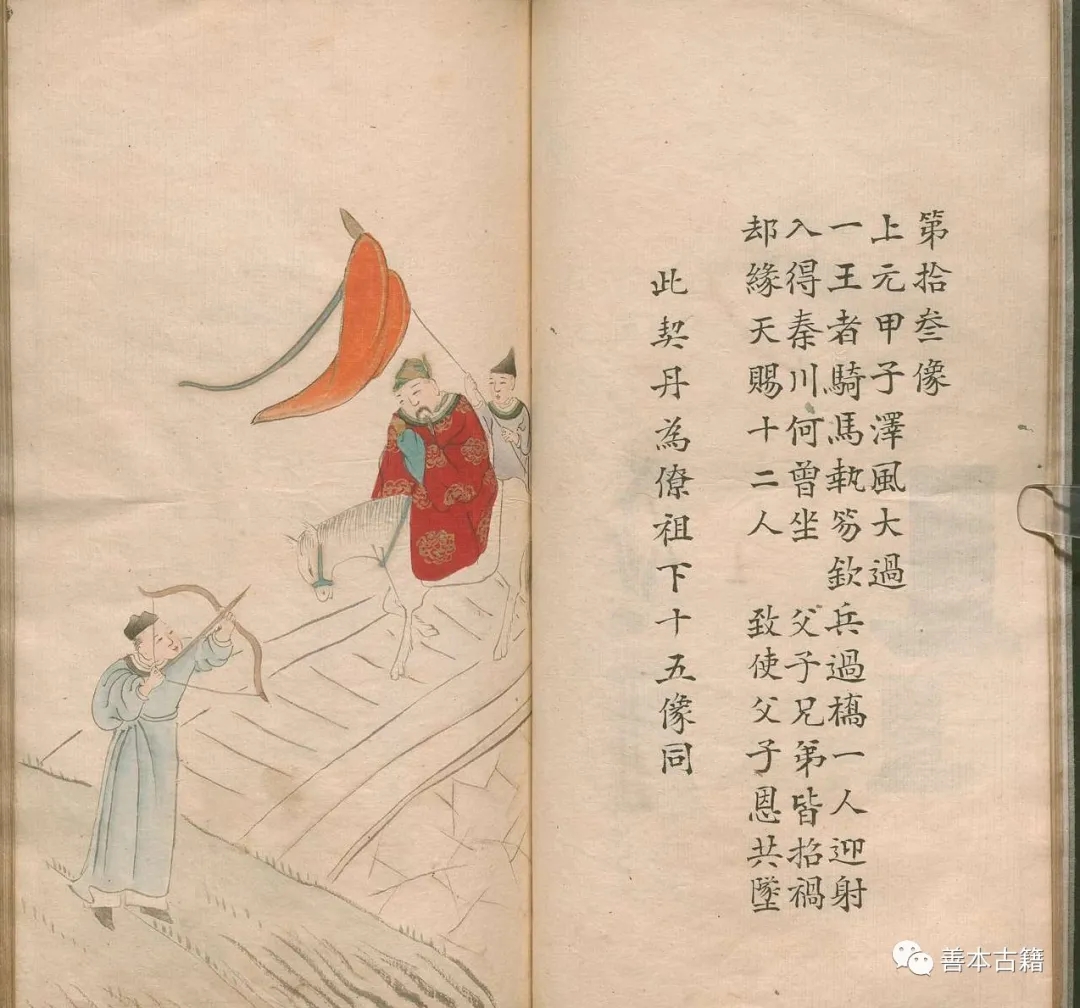 第拾叁像
上元甲子澤風大過
一王者騎馬執笏欽兵過橋一人迎射
入得秦川何曾坐 父子兄第皆招禍
却緣天賜十二人 致使父子恩共墜
此契丹為僚祖下十五像同
善本古籍